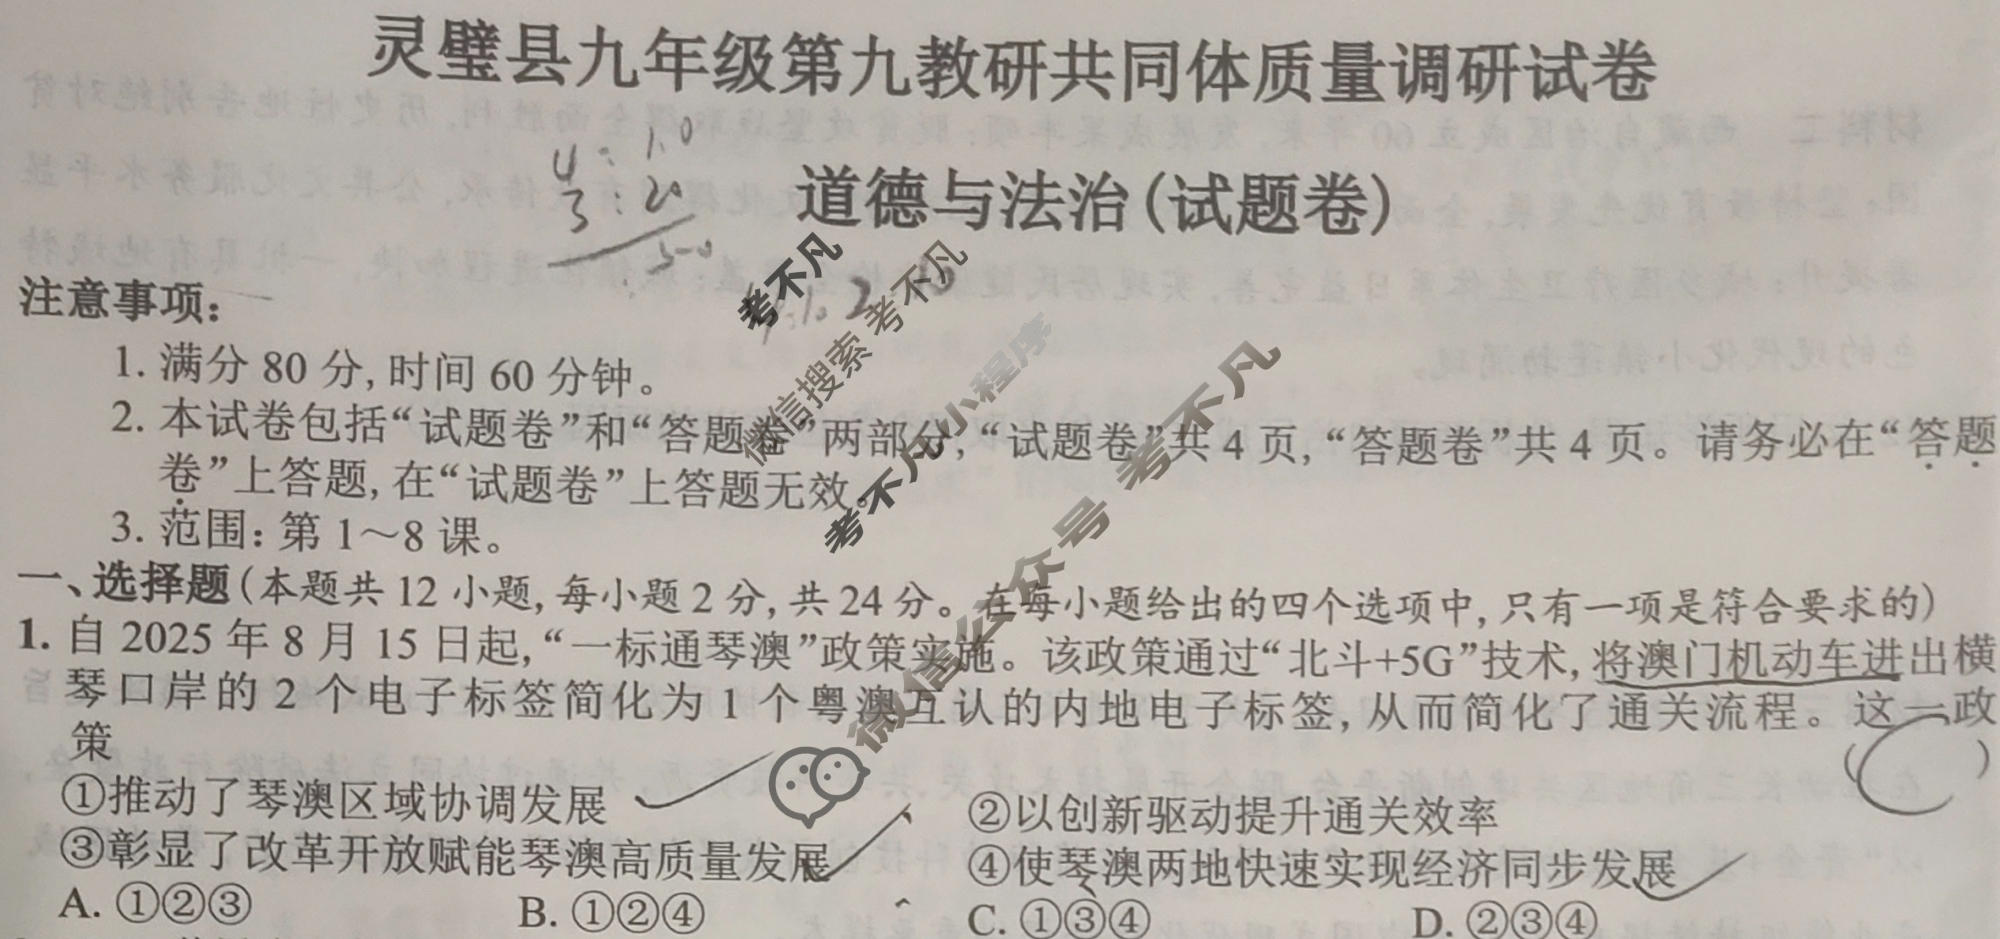 灵璧县九年级第九教研共同体质量调研试卷
4: 10
3: 20
道德与法治(试题卷)
注意事项:
1. 满分 80 分, 时间 60 分钟。
2. 本试卷包括“试题卷”和“答题卷”两部分, “试题卷”共 4 页, “答题卷”共 4 页。请务必在“答题
卷”上答题, 在“试题卷”上答题无效。
3. 范围: 第 1～8 课。
一、选择题(本题共 12 小题, 每小题 2 分, 共 24 分。在每小题给出的四个选项中, 只有一项是符合要求的)
1. 自 2025 年 8 月 15 日起, “一标通琴澳”政策实施。该政策通过“北斗+5G”技术, 将澳门机动车进出横
琴口岸的 2 个电子标签简化为 1 个粤澳互认的内地电子标签, 从而简化了通关流程。这一政
策 ( )
①推动了琴澳区域协调发展 ②以创新驱动提升通关效率
③彰显了改革开放赋能琴澳高质量发展 ④使琴澳两地快速实现经济同步发展
A. ①②③ B. ①②④ C. ①③④ D. ②③④
考不凡
微信搜索 考不凡
考不凡小程序
微信公众号 考不凡